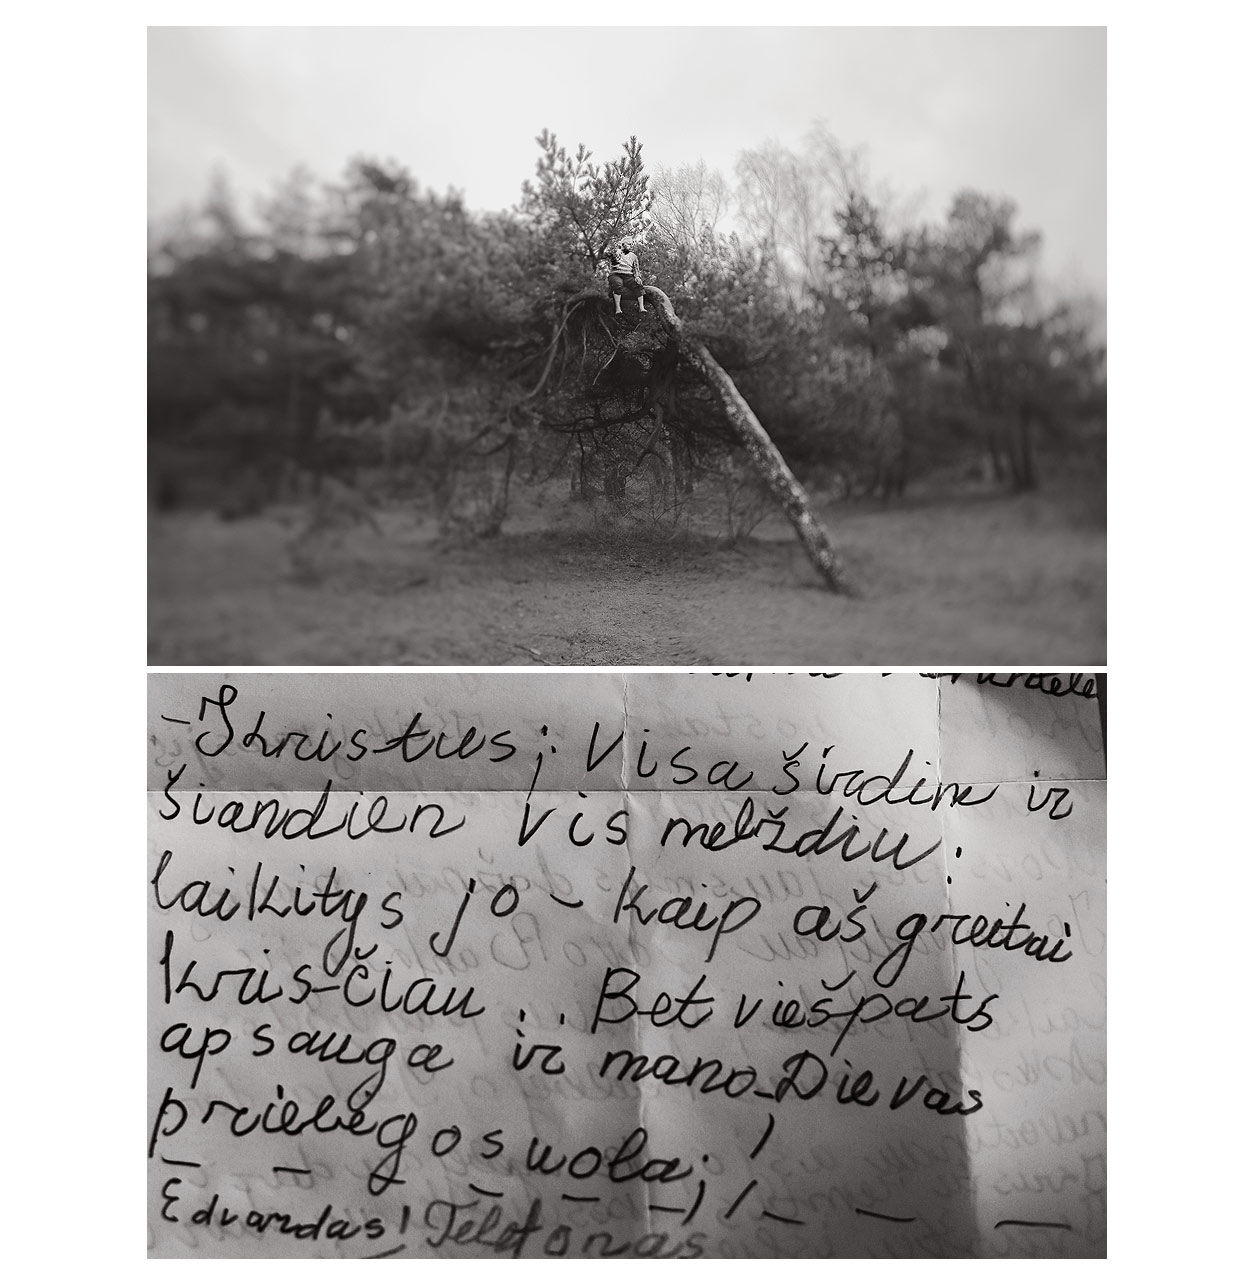 - Įkristus; Visa širdim ir
šiandien Vis melždiu:
laikitys jo - kaip aš greitai
kris-čiau... Bet viešpats
apsauga ir mano-Dievas
prieiėgos uola; !
Edvardas! Telefonas